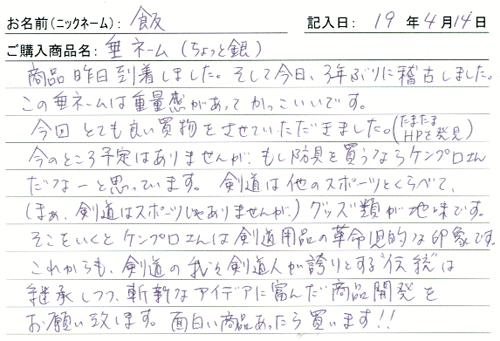 お名前(ニックネーム): 飯 記入日: 19 年 4 月 14 日
ご購入商品名: 垂ネーム (ちょっと銀)
商品昨日到着しました。そして今日、3年ぶりに稽古しました。
この垂ネームは重量感があってかっこいいです。
今回とても良い買物をさせていただきました。(たまたまHPを発見)
今のところ予定はありませんが、もし防具を買うならケンプロさん
だなーと思っています。剣道は他のスポーツとくらべて、
(まぁ、剣道はスポーツじゃありませんが、)グッズ類が地味です。
そこをいくとケンプロさんは剣道用品の革命児的な印象です。
これからも、剣道の我々剣道人が誇りとする"伝統"は
継承しつつ、斬新なアイデアに富んだ商品開発を
お願い致します。面白い商品あったら買います!!